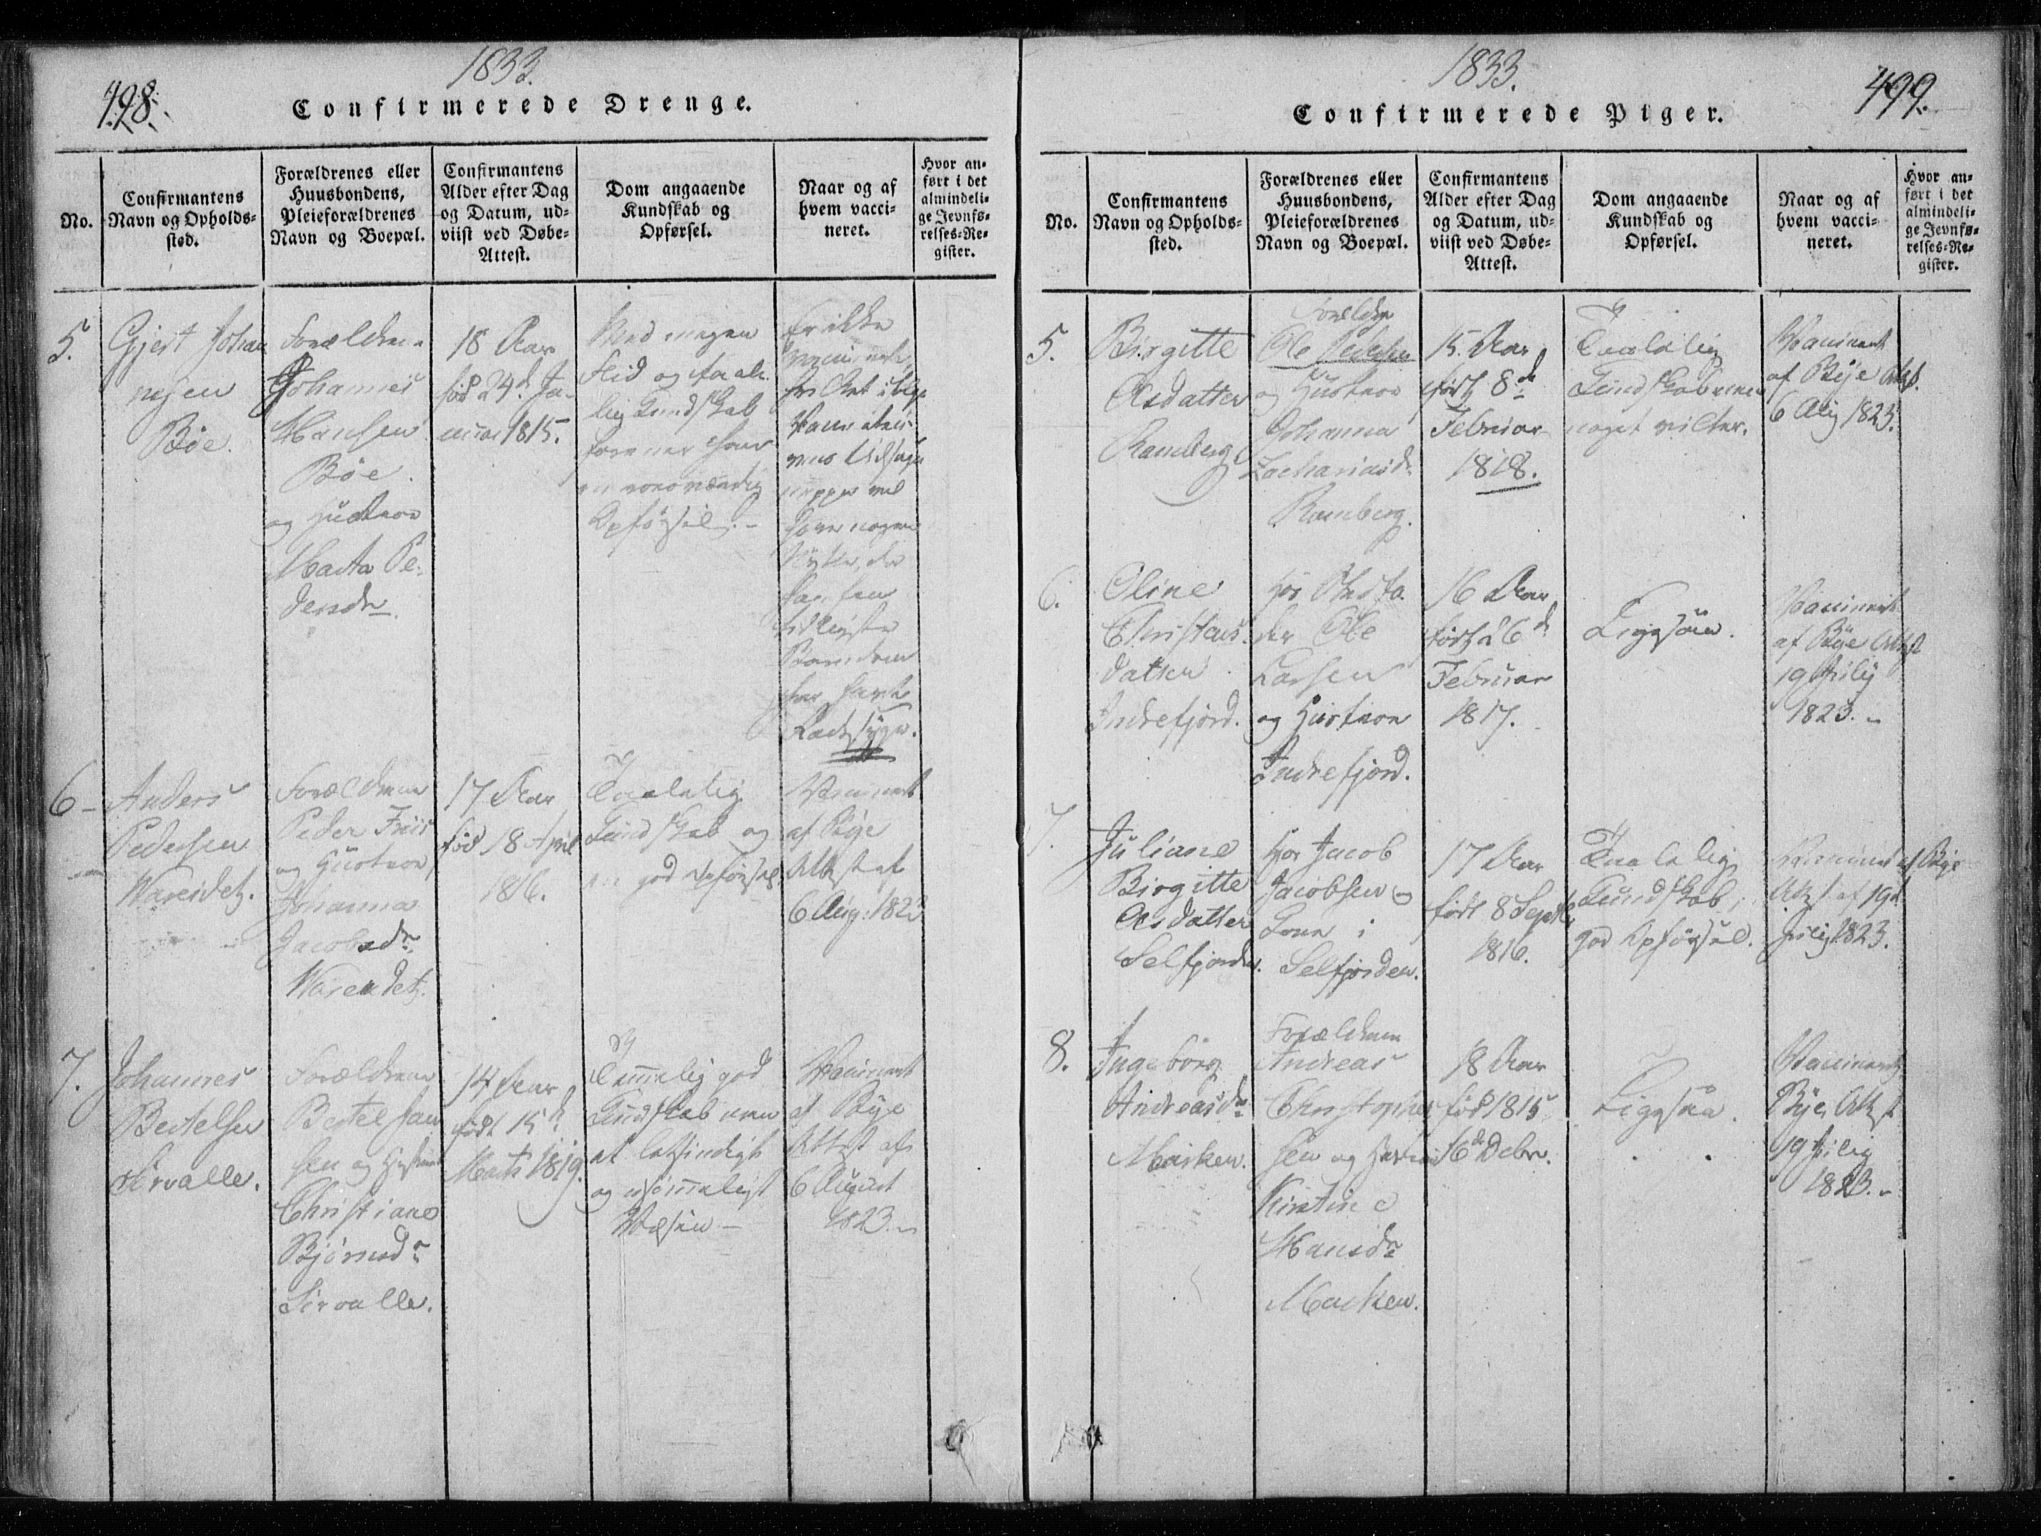 498.
1833.
Confirmerede Drenge.
No.
Confirmantens
Navn og Opholds-
sted.
Forældrenes eller
Huusbondens,
Pleieforældrenes
Navn og Boepæl.
Confirmantens
Alder efter Dag
og Datum, ud-
viist ved Døbe-
Attest.
Dom angaaende
Kundskab og
Opførsel.
Naar og af
hvem vacci-
neret.
Hvor an-
ført i det
almindeli-
ge Jevnfø-
relses-Re-
gister.
5.
Gjert Johan
nesen
Bøe.
Forældrene
Johannes
Hansen
Bøe.
og Hustroe
Marta Pe-
dersdr
18 Aar
fød 24d Ja-
nuar 1815.
Med megen
Flid og taale-
lig Kundskab
forener han
en
Opførsel.-
Er ikke
nogen
da
han
har havt
Radesyge.
6-
Anders
Pedersen
Wareidet.
Forældrene
Peder Friis
og Hustroe
Johanna
Jacobsdr
Wareidet.
17 Aar
fød 18 April
1816.
Taalelig
Kundskab og
en god Opførsel
Vaccineret
af Bye
Attest af
6 Aug: 1823
7.
Johannes
Bertelsen
Sirvalle.
Forældrene
Bertel Han
sen og Hustroe
Christiane
Bjørnsdr
Sirvalle.
14 Aar
født 15d
Marts 1819.
Temmelig god
Kundskab men
et letsindigt
og usømmeligt
Væsen-
Vaccineret
af Bye
Attest af
6 August
1823.-
1833.
499.
Confirmerede Piger.
No.
Confirmantens
Navn og Opholds-
sted.
Forældrenes eller
Huusbondens,
Pleieforældrenes
Navn og Boepæl.
Confirmantens
Alder efter Dag
og Datum, ud-
viist ved Døbe-
Attest.
Dom angaaende
Kundskab og
Opførsel.
Naar og af
hvem vacci-
neret.
Hvor an-
ført i det
almindeli-
ge Jevnfø-
relses-Re-
gister.
5.
Birgitte
Olsdatter
Ramberg
Forældre
Ole
og Hustroe
Johanna
Zachariasdr
Ramberg.
15. Aar
født 8de
Februar
1818.
Taalelig
Kundskab men
noget vilter.
Vaccineret
af Bye Attst.
6 Aug 1823.
6.
Oline
Christens-
datter
Indrefjord.
Hos Plejefa-
der Ole
Larsen
og Hustroe
Indrefjord.
16 Aar
født 26d
Februar
1817.
Ligesaa.
Vaccineret
af Bye Attst
19 July
1823.-
7.
Juliane
Birgitte
Olsdatter
Selfjorden.
Hos Jacob
Jacobsen og
Kone i
Selfjorden.
17 Aar
født 8 Septb
1816.
Taalelig
Kundskab,
god Opførsel.
Vaccineret af Bye
Attst af 19d
July 1823.
8.
Ingeborg
Andreasdr
Marken.
Forældrene
Andreas
Christopher
sen og Hustroe
Kirstine
Hansdr
Marken.
18 Aar
fød 1815
16de Debr.
Ligesaa.
Vaccineret
Bye Attst
19 July
1823.-